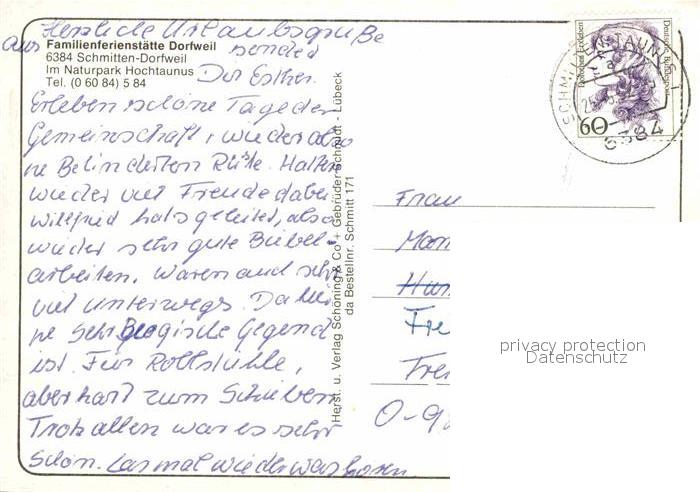 Herzliche Urlaubsgrüße
aus Familienferienstätte Dorfweil
6384 Schmitten-Dorfweil
Im Naturpark Hochtaunus
Tel. (0 60 84) 5 84
sendet
Dir Esther.
Erleben schöne Tage der
Gemeinschaft, wieder als
ne Behinderten Rüste. Hatten
wieder viel Freude dabei
Wilfried hats geleitet, also
wieder sehr gute Bibel-
arbeiten. Waren auch sehr
viel unterwegs. Da hier
ne sehr bergische Gegend
ist. Für Rollstühle,
aber hart zum Schieben
Trotz allem war es sehr
Schön. Lass mal wieder was hören
Herst. u. Verlag Schöning & Co + Gebrüder Schmidt - Lübeck
da Bestellnr. Schmitt 171
SCHMITTEN, TAUNUS 1
6384
Deutsche Bundespost
60
Frau
Fre
O-9
privacy protection
Datenschutz